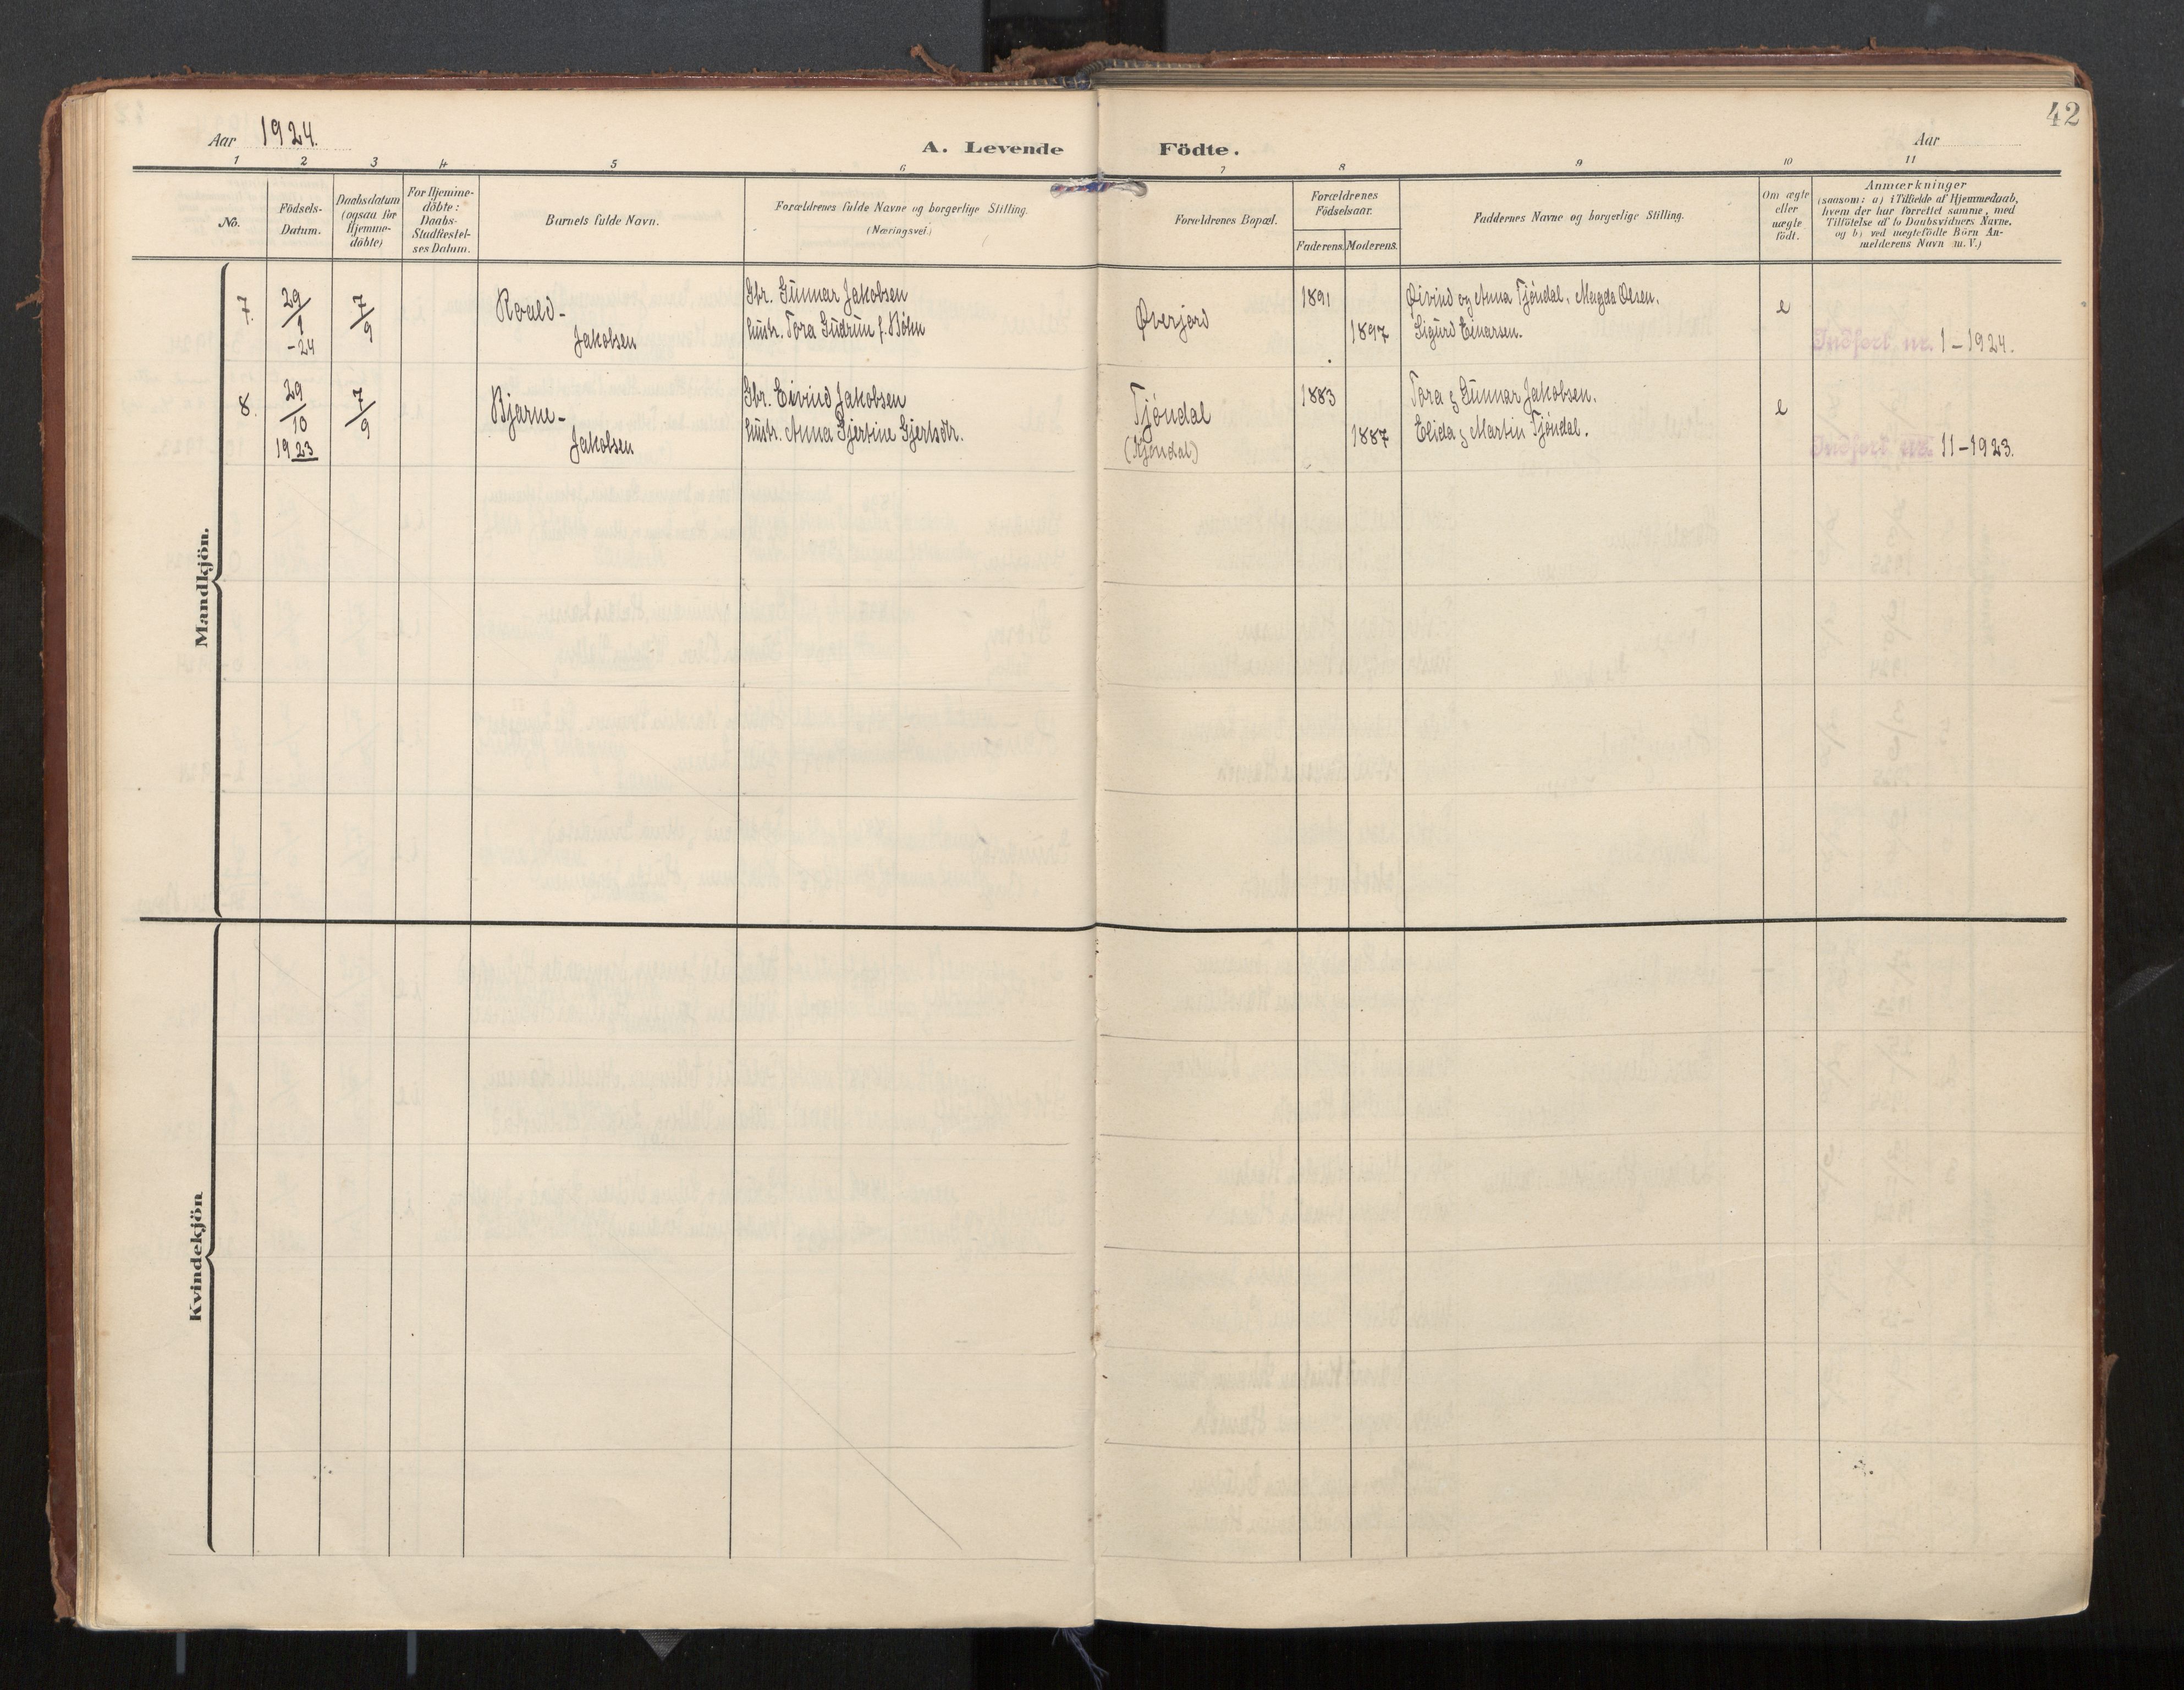 42
Aar 1924.
A. Levende Födte.
Aar
1 2 3 4 5 6 7 8 9 10 11
No.
Födsels-
Datum.
Daabsdatum
(ogsaa for
Hjemme-
döbte)
For Hjemme-
döbte:
Daabs-
Stadfæstel-
ses Datum.
Barnets fulde Navn.
Forældrenes fulde Navne og borgerlige Stilling.
(Næringsvei.)
Forældrenes Bopæl.
Forældrenes
Födselsaar.
Faderens. Moderens.
Faddernes Navne og borgerlige Stilling.
Om ægte
eller
uægte
födt.
Anmærkninger
(saasom: a) i Tilfælde af Hjemmedaab,
hvem der har forrettet samme, med
Tilföielse af to Daabsvidners Navne,
og b) ved uægtefödte Börn An-
melderens Navn m. V.)
Mandkjön.
7. 29/1 -24 7/9 Roald- Gbr. Gunnar Jakobsen Øverjord 1891 Øivind og Anna Tjöndal, Magda Olsen. e
Jakobsen hustr. Tora Gudrun f. Böhn 1897 Sigurd Einarsen.
Indført nr. 1-1924.
8. 29/10 1923 7/9 Bjarne- Gbr. Eivind Jakobsen Tjöndal 1883 Tora & Gunnar Jakobsen. e
Jakobsen hustr. Anna Gjertine Gjertsdtr. (Kjöndal) 1887 Elida & Martin Tjöndal.
Indført nr. 11-1923.
Kvindekjön